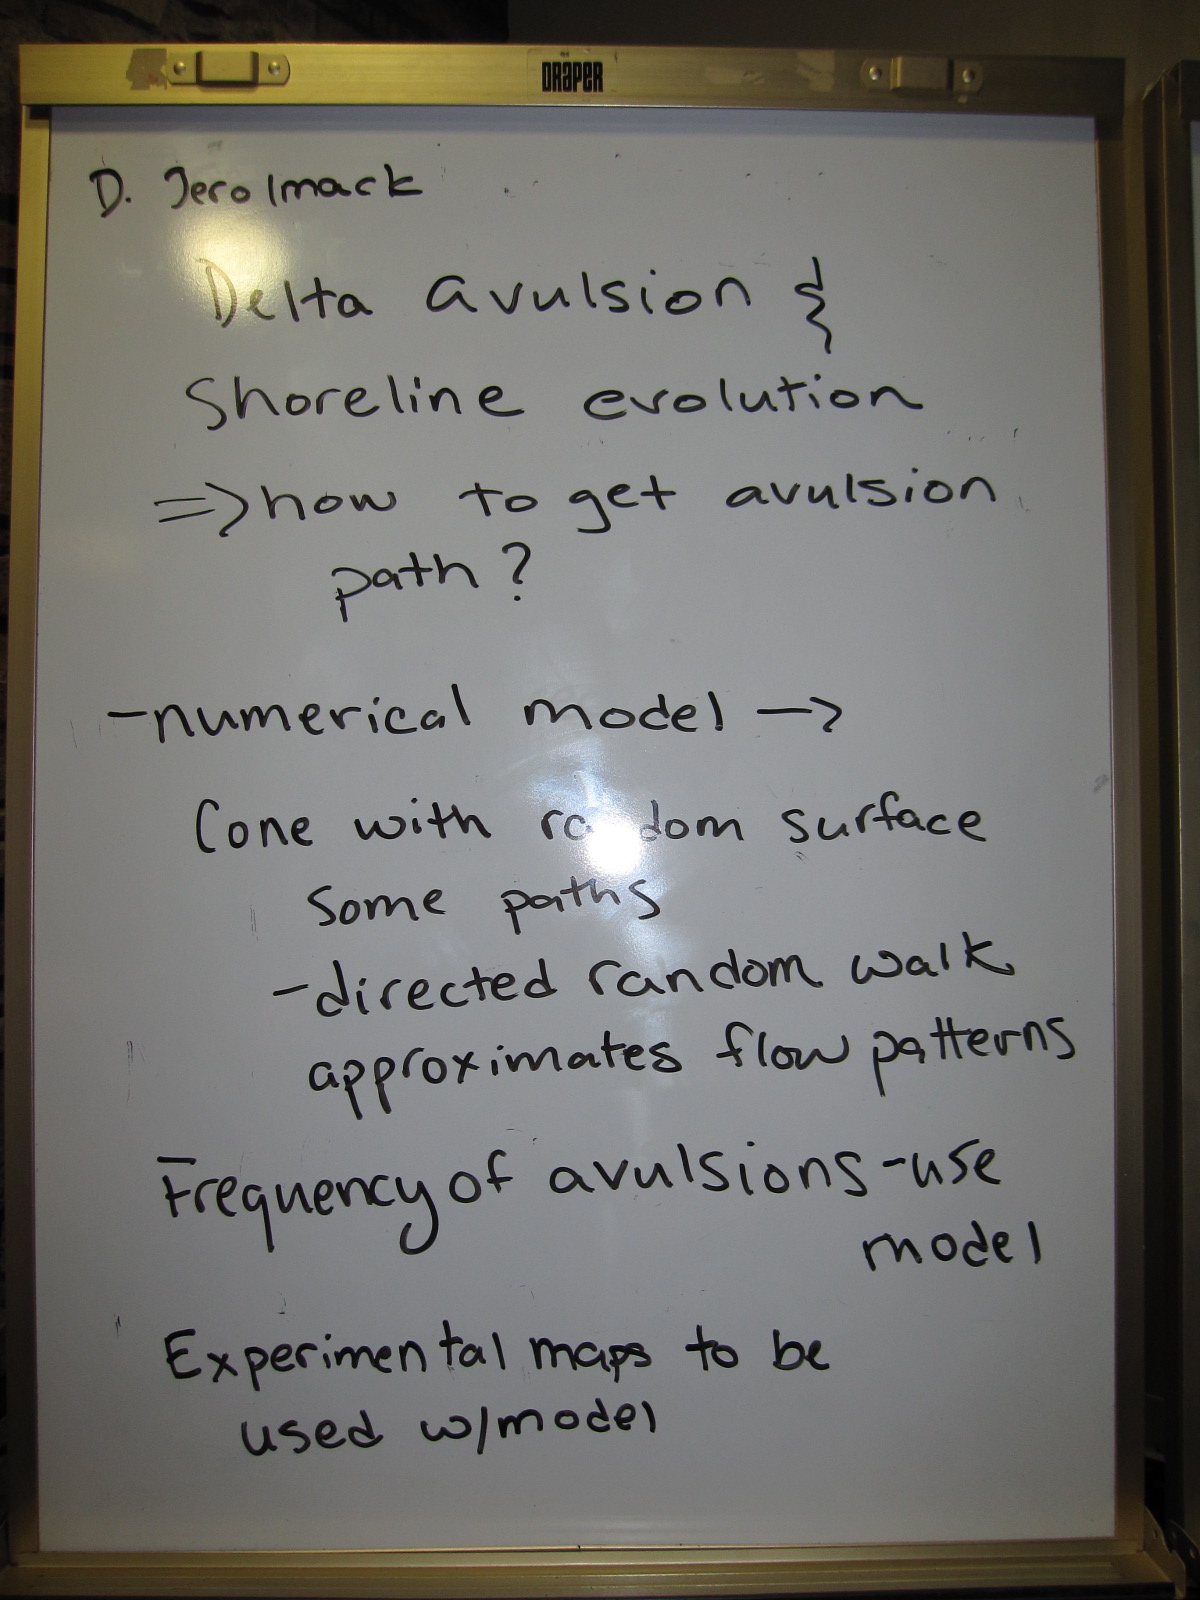 DRAPER
D. Jerolmack
Delta avulsion &
Shoreline evolution
=> how to get avulsion
path?
- numerical model ->
Cone with random surface
some paths
- directed random walk
approximates flow patterns
Frequency of avulsions - use
model
Experimental maps to be
used w/model